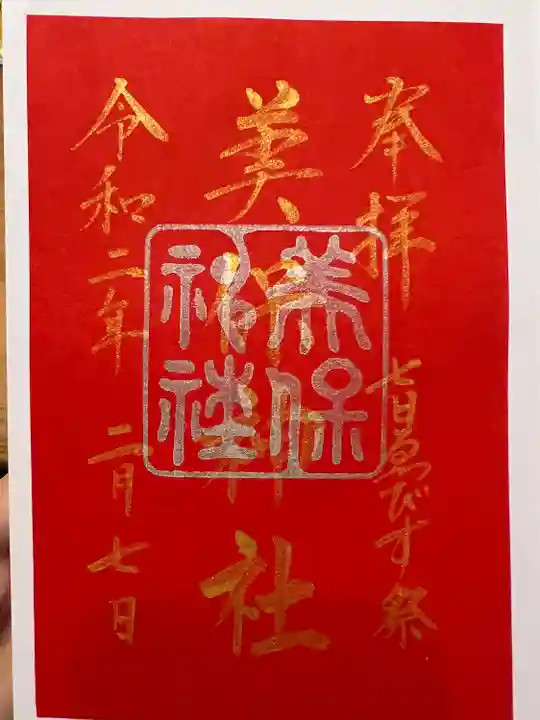 奉拝
七日ゑびす祭
美保神社
美保
神社
令和二年
二月七日